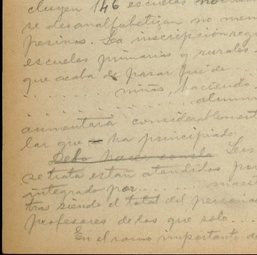 cluyen 146 escuelas noc
se desanalfabetizan no meno
pesinos. La inscripción reg
escuelas primarias y rurales
que acaba de pasar fué de
. . . . . . . . niños, haciendo
. . . . . . . . . . . . . . . . . . alumn
aumentará considerablement
lar que ha principiado.
Debo hacer consta Los
se trata están atendidos por
integrado por . . . . . . maest
tra siendo el total del persona
profesores de los que solo . . .
En el ramo importante de